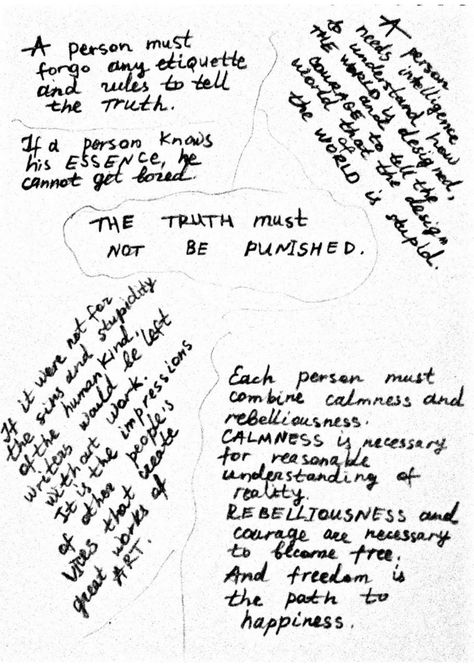 A person must
forgo any etiquette
and rules to tell
the truth.
If a person knows
his ESSENCE, he
cannot get bored
A person
needs intelligence
to understand how
THE WORLD is designed,
and
COURAGE to tell the
world that the design
of
the WORLD is stupid.
THE TRUTH must
NOT BE PUNISHED.
If it were not for
the sins and stupidity
of the human kind,
writers would be left
without work.
It is the impressions
of other people's
VICES that create
great works of
ART.
Each person must
combine calmness and
rebelliousness.
CALMNESS is necessary
for reasonable
understanding of
reality.
REBELLIOUSNESS and
courage are necessary
to become free.
And freedom is
the path to
happiness.